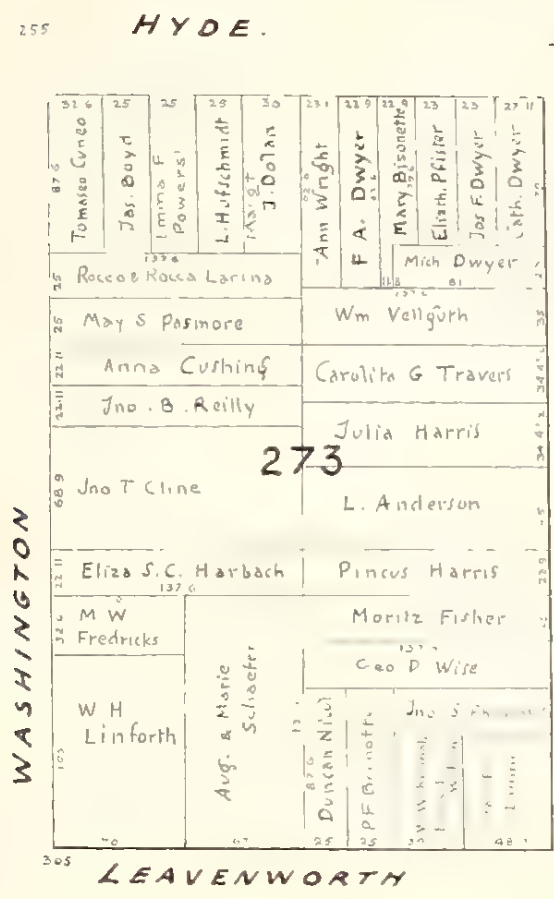 255
HYDE.
32 6
25
25
25
30
23 1
22 9
22 9
23
23
27 11
87 6
Tomaseo Cuneo
Jas. Boyd
Emma F
Powers
L. Hufschmidt
Margt
J. Dolan
Ann Wright
F A. Dwyer
Mary Bisonette
Elizth. Pfister
Jos F. Dwyer
Cath. Dwyer
Mich Dwyer
81
137 6
25
Rocco & Rocca Larina
137 6
Wm Vellguth
35
25
May S Pasmore
22 11
Anna Cushing
Carolita G Travers
34 4½
22 11
Jno. B. Reilly
Julia Harris
34 4½
273
68 9
Jno T Cline
L. Anderson
22 11
Eliza S.C. Harbach
137 6
Pincus Harris
22 9
32 6
M W
Fredricks
Moritz Fisher
Geo D Wise
W H
Linforth
Aug. & Marie
Schaefer
87 6
Duncan Nicol
P F
Jno S
105
70
67
25
25
48
WASHINGTON
305
LEAVENWORTH